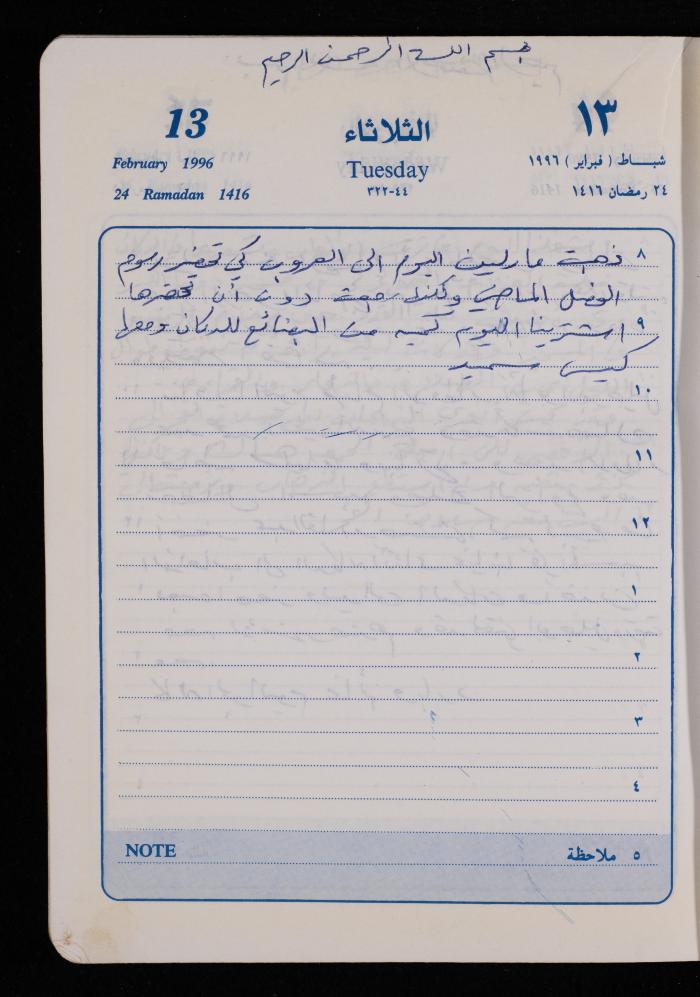 بسم الله الرحمن الرحيم
13 الثلاثاء ١٣
February 1996 Tuesday شباط ( فبراير ) ١٩٩٦
24 Ramadan 1416 ٣٢٢-٤٤ ٢٤ رمضان ١٤١٦
٨ ذهبت مارلين اليوم الى العروب كي تحضر رسوم
الفصل الماضي ولكنها رجعت دون أن تحضرها
٩ اشترينا اليوم كمية من البضائع للدكان ومعها
كيس سميد
١٠
١١
١٢
١
٢
٣
٤
NOTE ٥ ملاحظة